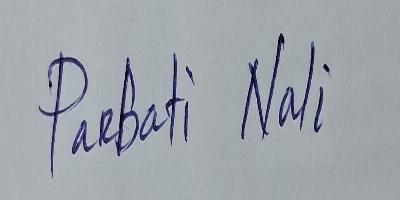 Parbati Nali